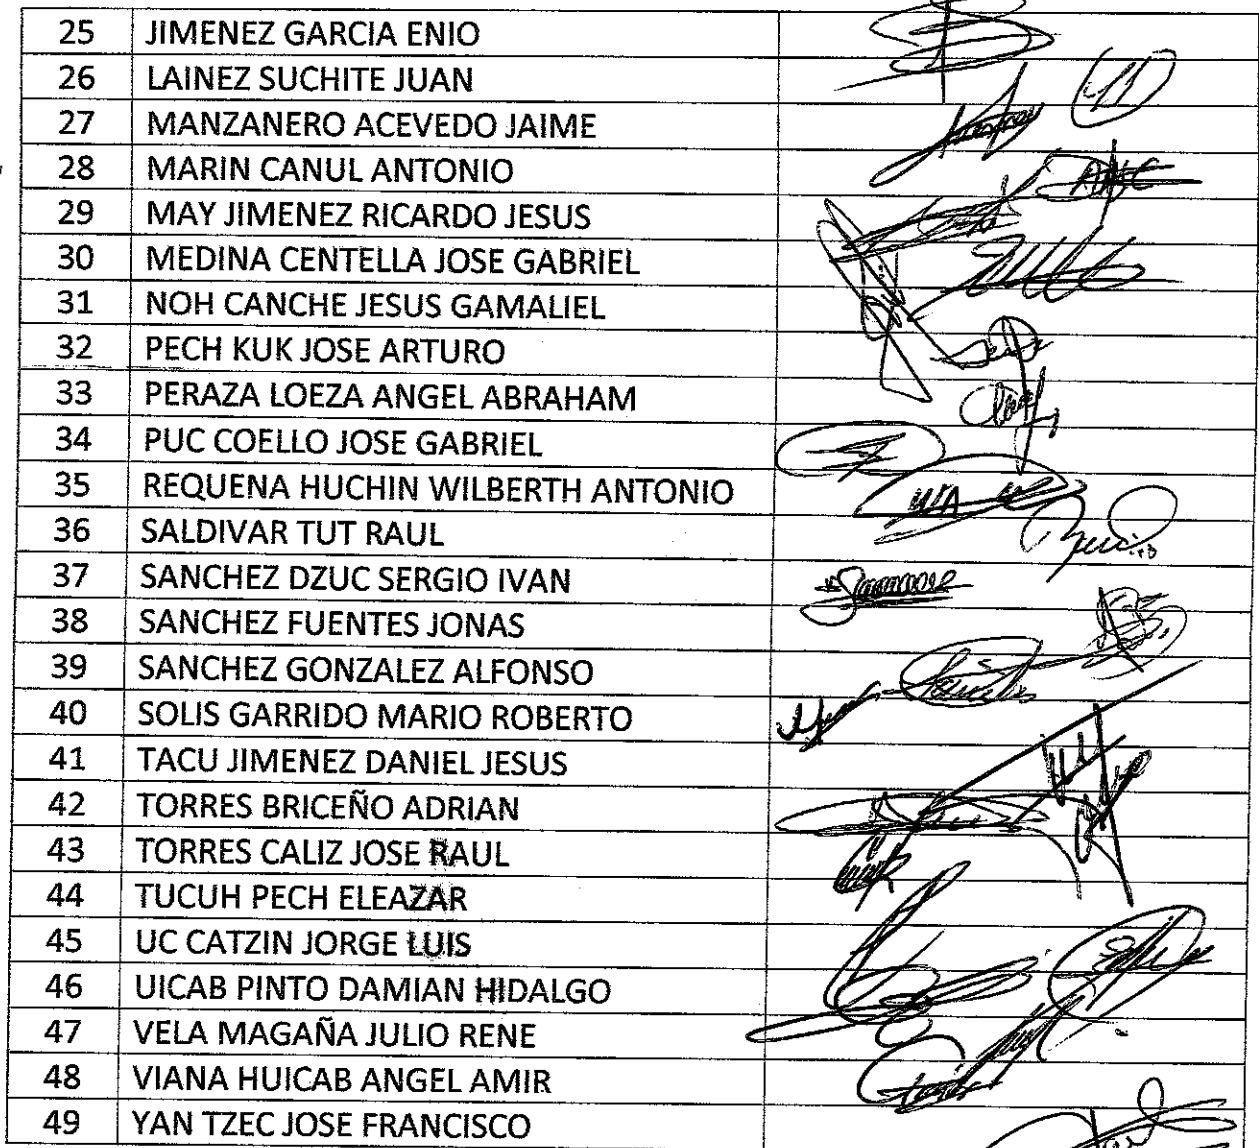 25 JIMENEZ GARCIA ENIO
26 LAINEZ SUCHITE JUAN
27 MANZANERO ACEVEDO JAIME
28 MARIN CANUL ANTONIO
29 MAY JIMENEZ RICARDO JESUS
30 MEDINA CENTELLA JOSE GABRIEL
31 NOH CANCHE JESUS GAMALIEL
32 PECH KUK JOSE ARTURO
33 PERAZA LOEZA ANGEL ABRAHAM
34 PUC COELLO JOSE GABRIEL
35 REQUENA HUCHIN WILBERTH ANTONIO
36 SALDIVAR TUT RAUL
37 SANCHEZ DZUC SERGIO IVAN
38 SANCHEZ FUENTES JONAS
39 SANCHEZ GONZALEZ ALFONSO
40 SOLIS GARRIDO MARIO ROBERTO
41 TACU JIMENEZ DANIEL JESUS
42 TORRES BRICEÑO ADRIAN
43 TORRES CALIZ JOSE RAUL
44 TUCUH PECH ELEAZAR
45 UC CATZIN JORGE LUIS
46 UICAB PINTO DAMIAN HIDALGO
47 VELA MAGAÑA JULIO RENE
48 VIANA HUICAB ANGEL AMIR
49 YAN TZEC JOSE FRANCISCO